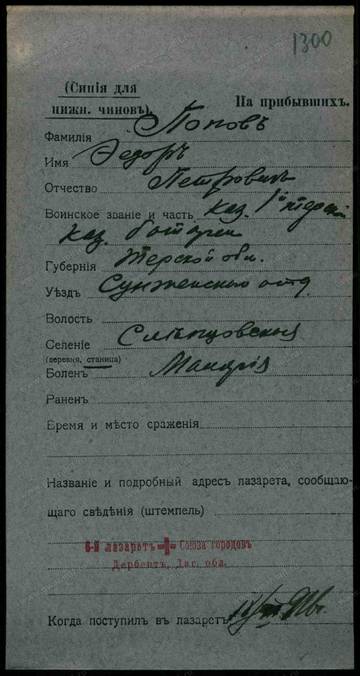 1300
(Синія для
нижн. чиновъ)
На прибывшихъ.
Фамилія Поповъ
Имя Ѳедоръ
Отчество Петровичъ
Воинское званіе и часть каз. 1й терской
каз. батареи
Губернія Терской обл.
Уѣздъ Сунженскаго отд
Волость
Селеніе Слѣпцовская
(деревня, станица)
Боленъ Малярія
Раненъ
Время и мѣсто сраженія
Названіе и подробный адресъ лазарета, сообщаю-
щаго свѣдѣнія (штемпель)
6-й лазаретъ Союза городовъ
Дербентъ, Даг. обл.
Когда поступилъ въ лазаретъ